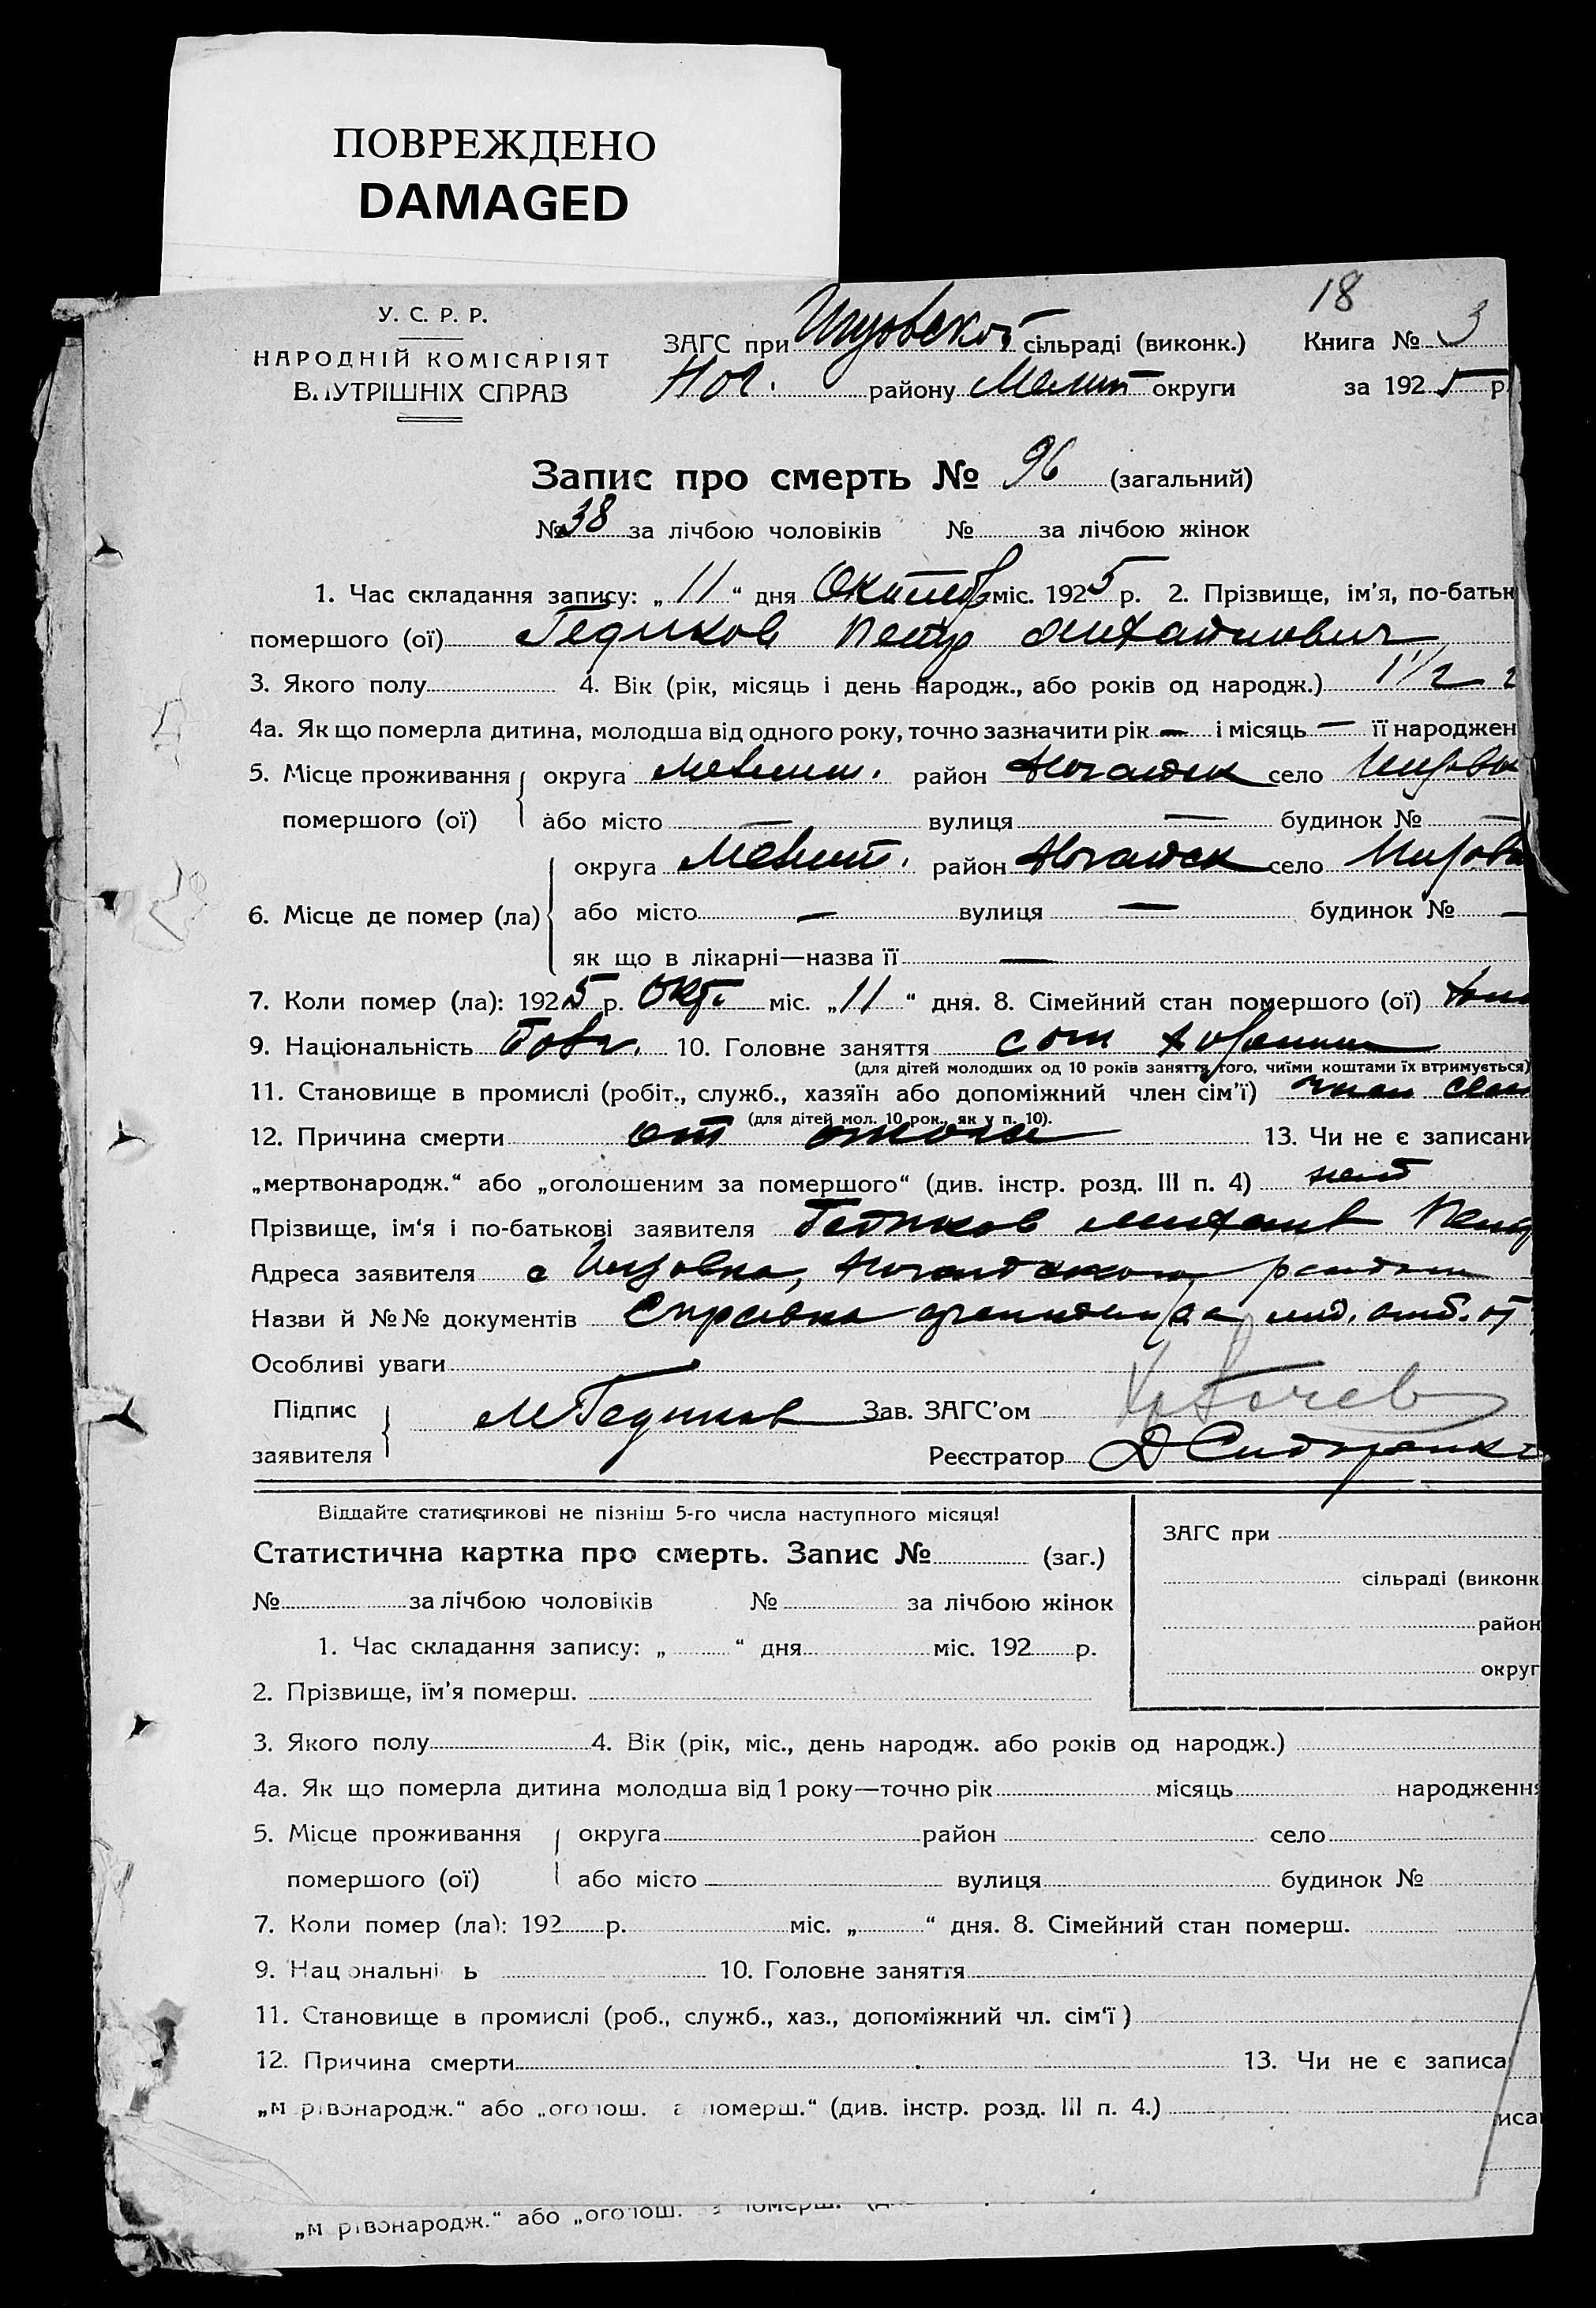 ПОВРЕЖДЕНО
DAMAGED
18
У. С. Р. Р.
НАРОДНІЙ КОМІСАРІЯТ
ВНУТРІШНІХ СПРАВ
ЗАГС при сільраді (виконк.)
Ног. району Мелит округи
Книга № 3
за 1925 р.
Запис про смерть № 96 (загальний)
№ 38 за лічбою чоловіків № за лічбою жінок
1. Час складання запису: „ 11 “ дня Октября міс. 1925 р. 2. Прізвище, ім’я, по-батьк
помершого (ої) Гедиков Петр Михайлович
3. Якого полу 4. Вік (рік, місяць і день народж., або років од народж.) 1 1/2 г
4а. Як що померла дитина, молодша від одного року, точно зазначити рік — і місяць — її народжен
5. Місце проживання округа Мелит. район Ногайск село
помершого (ої) або місто — вулиця — будинок № —
округа Мелит. район Ногайск село
6. Місце де помер (ла) або місто — вулиця — будинок № —
як що в лікарні—назва її —
7. Коли помер (ла): 1925 р. Окт. міс. „ 11 “ дня. 8. Сімейний стан помершого (ої)
9. Національність Болг. 10. Головне заняття
(для дітей молодших од 10 років заняття того, чиїми коштами їх втримується)
11. Становище в промислі (робіт., служб., хазяїн або допоміжний член сім’ї) член сем
(для дітей мол. 10 рок., як у п. 10).
12. Причина смерти от 13. Чи не є записани
„мертвонародж.“ або „оголошеним за помершого“ (див. інстр. розд. III п. 4) нет
Прізвище, ім‘я і по-батькові заявителя Гедиков Михаил Петр
Адреса заявителя с Ногайского района
Назви й №№ документів Справка
Особливі уваги
Підпис заявителя М Гедиков Зав. ЗАГС’ом
Реєстратор Д Сидоренко
Віддайте статистикові не пізніш 5-го числа наступного місяця!
Статистична картка про смерть. Запис № (заг.)
№ за лічбою чоловіків № за лічбою жінок
1. Час складання запису: „ “ дня міс. 192 р.
2. Прізвище, ім’я померш.
ЗАГС при
сільраді (виконк.
район
округ
3. Якого полу 4. Вік (рік, міс., день народж. або років од народж.)
4а. Як що померла дитина молодша від 1 року—точно рік місяць народження
5. Місце проживання округа район село
помершого (ої) або місто вулиця будинок №
7. Коли помер (ла): 192 р. міс. „ “ дня. 8. Сімейний стан померш.
9. Нац ональні ь 10. Головне заняття
11. Становище в промислі (роб., служб., хаз., допоміжний чл. сім‘ї)
12. Причина смерти 13. Чи не є записа
„м ртвонародж.“ або „оголош. а померш.“ (див. інстр. розд. III п. 4.)
иса
„м ртвонародж.“ або „оголош. з померш.